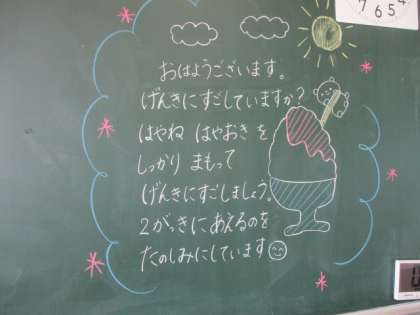 おはようございます。
げんきにすごしていますか?
はやね はやおきを
しっかり まもって
げんきにすごしましょう。
2がっきにあえるのを
たのしみにしています
7 6 5 4